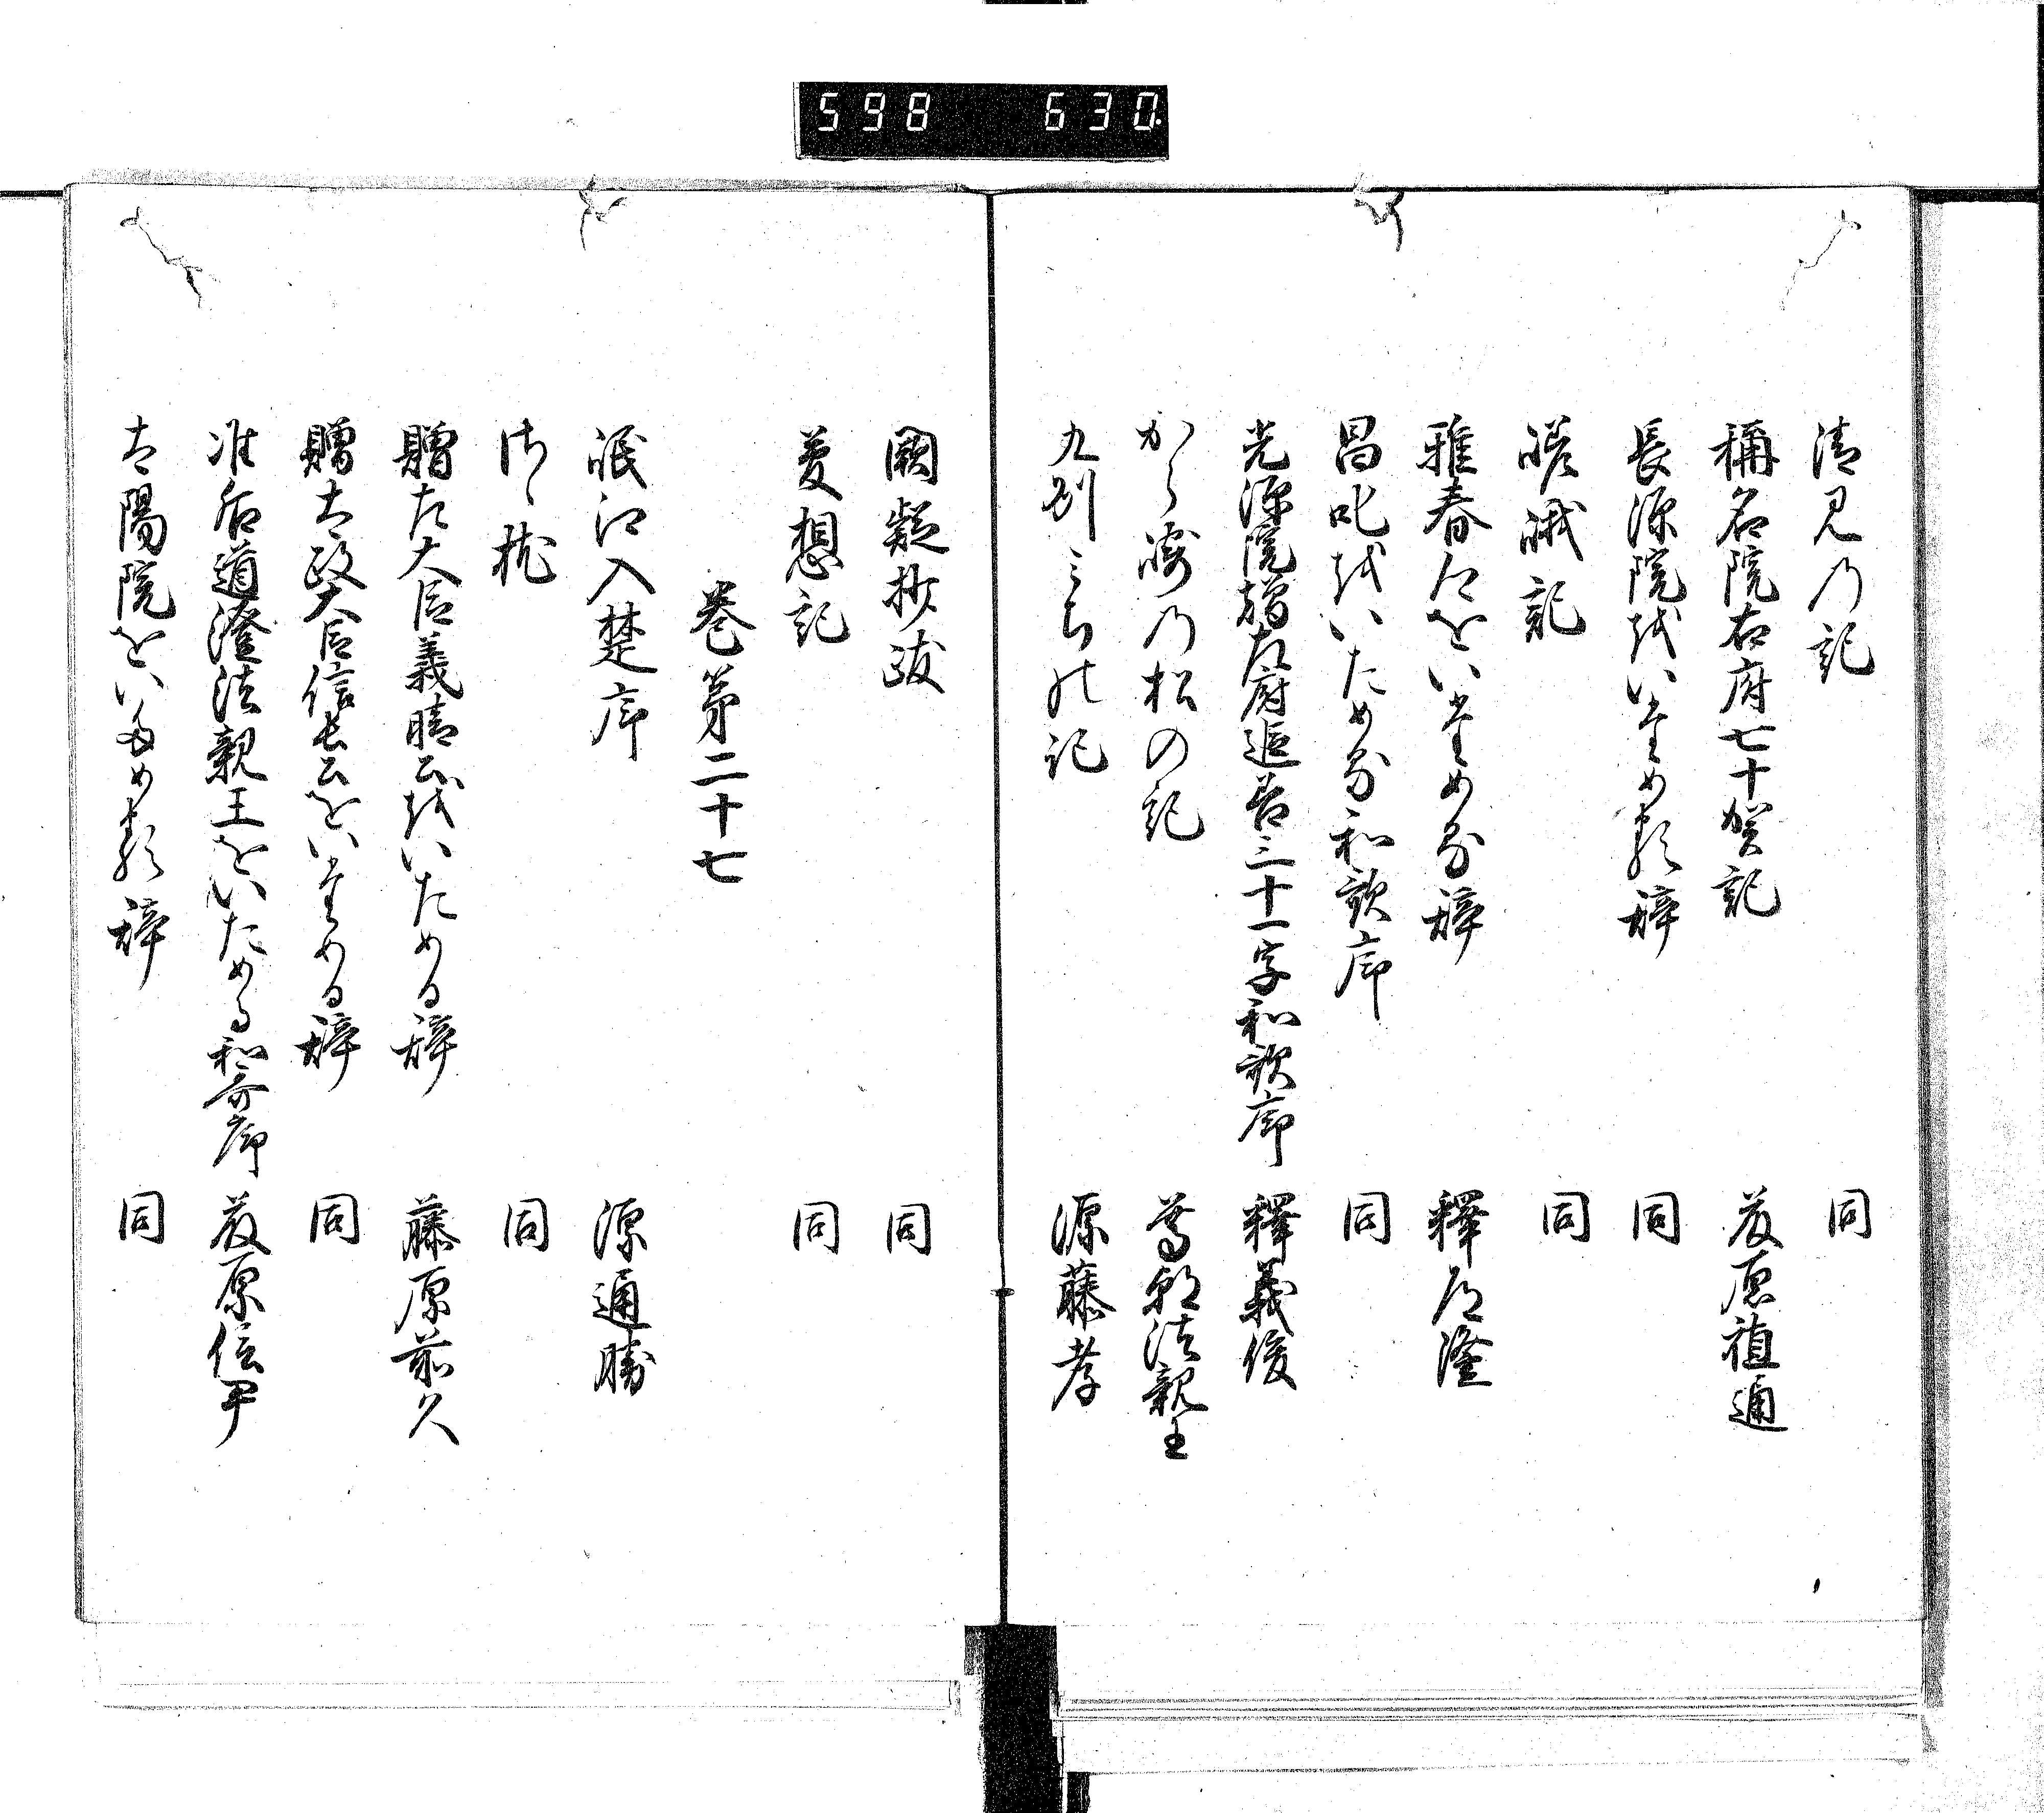 598 630
清見乃記 同
稱名院右府七十賀記 藤原稙通
長源院越いためる辞 同
嵯峨記 同
雅春仁をいためる辞 釋道澄
昌叱越いためる和歌序 同
光源院贈左府追善三十一字和歌序 釋義俊
から崎乃松の記 尊朝法親王
九州みちの記 源藤孝
闕疑抄跋 同
夢想記 同
巻第二十七
岷江入楚序 源通勝
枕 同
贈左大臣義晴公越いためる辞 藤原前久
贈太政大臣信長公をいためる辞 同
准后道澄法親王をいためる和哥序 藤原信尹
太陽院をいためる辞 同